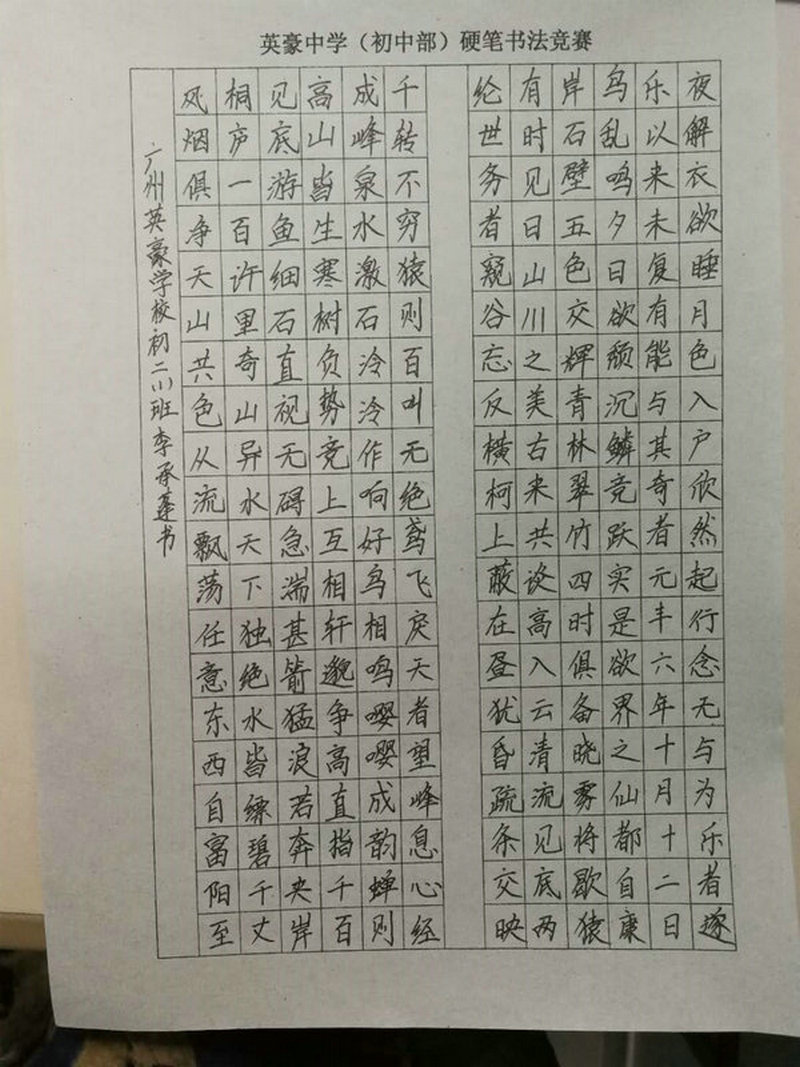 英豪中学（初中部）硬笔书法竞赛
风烟俱净天山共色从流飘荡任意东西自富阳至
桐庐一百许里奇山异水天下独绝水皆缥碧千丈
见底游鱼细石直视无碍急湍甚箭猛浪若奔夹岸
高山皆生寒树负势竞上互相轩邈争高直指千百
成峰泉水激石泠泠作响好鸟相鸣嘤嘤成韵蝉则
千转不穷猿则百叫无绝鸢飞戾天者望峰息心经
纶世务者窥谷忘反横柯上蔽在昼犹昏疏条交映
有时见日山川之美古来共谈高入云清流见底两
岸石壁五色交辉青林翠竹四时俱备晓雾将歇猿
鸟乱鸣夕日欲颓沉鳞竞跃实是欲界之仙都自康
乐以来未复有能与其奇者元丰六年十月十二日
夜解衣欲睡月色入户欣然起行念无与为乐者遂
广州英豪学校初二(1)班李承蓬书